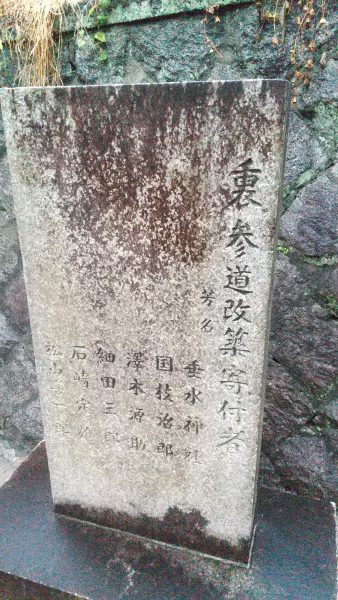 裏参道改築寄付者
芳名
垂水神社
国枝治郎
澤木源助
細田三郎
石崎